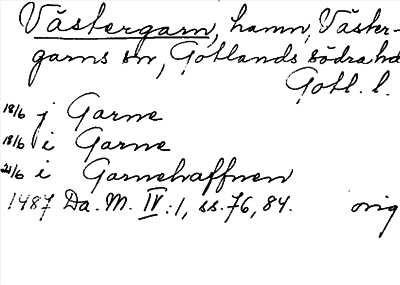 Västergarn, hamn, Väster-
garns sn, Gotlands södra hd
Gotl. l.
18/6 j Garne
18/6 i Garne
21/6 i Garnehaffnen
1487 Da. M. IV:1, ss. 76, 84. orig